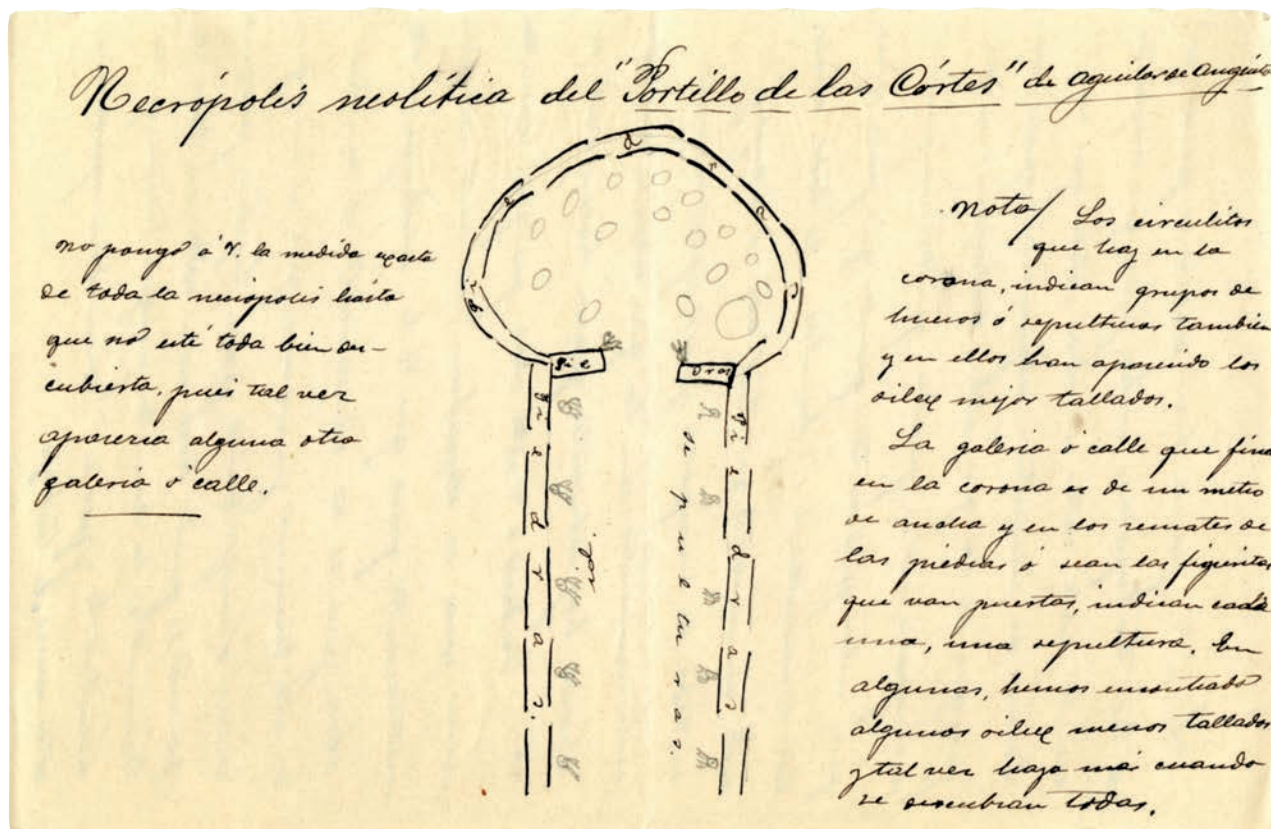 Necrópolis neolítica del "Portillo de las Córtes" de aguilar de anguita
no pongo á V. la medida exacta
de toda la necrópolis hasta
que no esté toda bien des-
cubierta, pues tal vez
aparezca alguna otra
galeria ó calle.
nota/ Los circulitos
que hay en la
corona, indican grupos de
huesos ó sepulturas tambien
y en ellos han aparecido los
silex mejor tallados.
La galeria ó calle que fina
en la corona es de un metro
de ancha y en los remates de
las piedras ó sean las figuritas
que van puestas, indican cada
una, una sepultura. En
algunas, hemos encontrado
algunos silex menos tallados
y tal vez haya más cuando
se descubran todas.
piedras
piedras.
piedras
sepulturas.